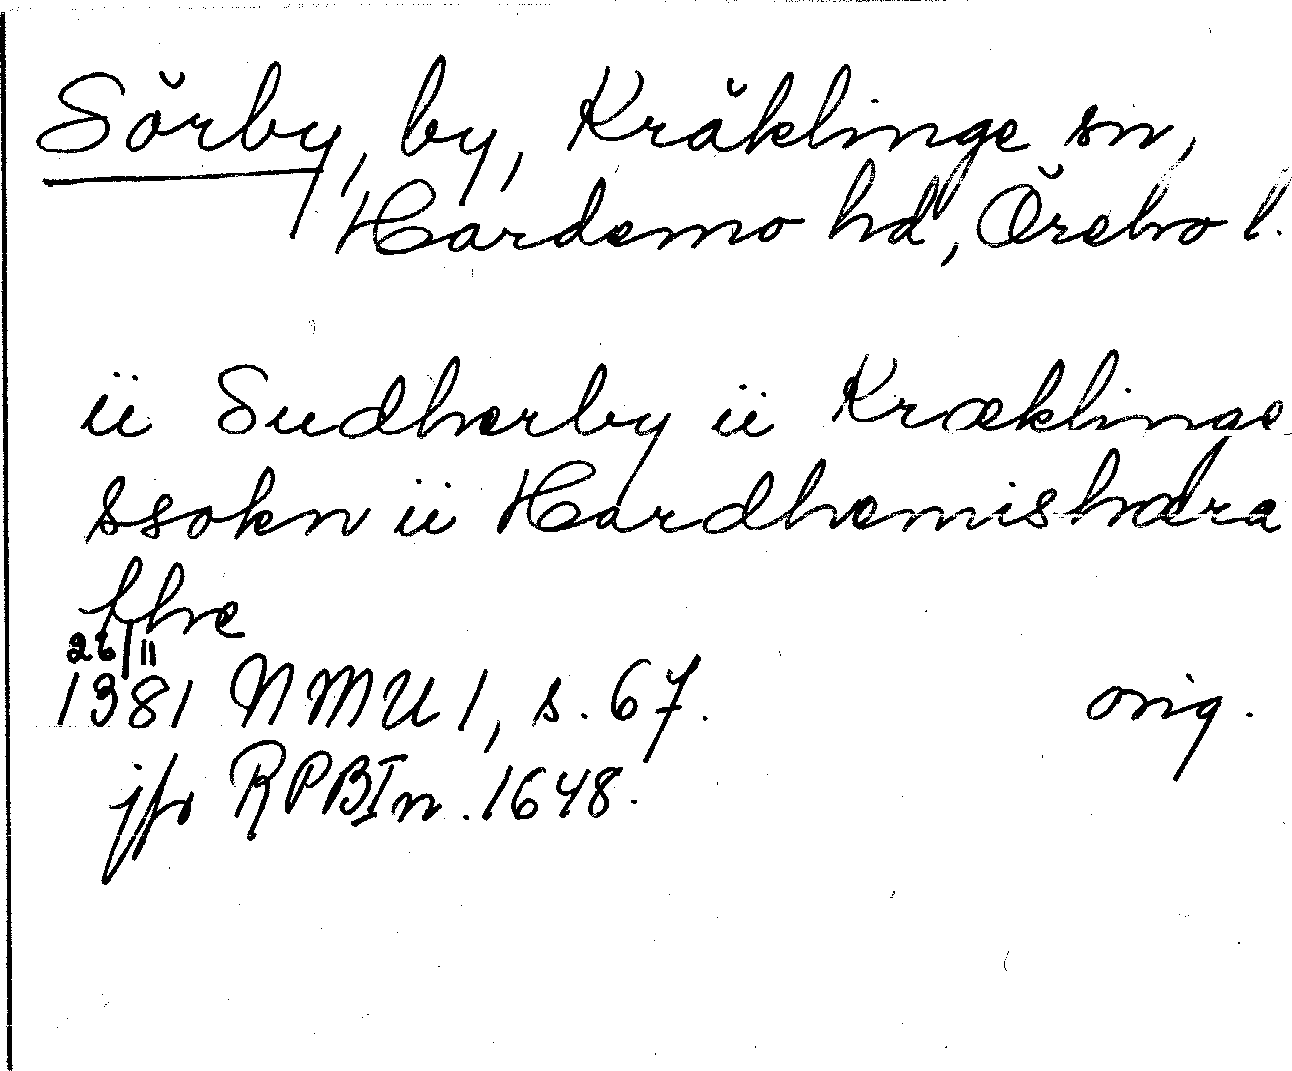 Sörby, by, Kräklinge sn,
Hardemo hd, Örebro l.
ii Sudherby ii Kræklinge
ssokn ii Hardhemishæra
thhe
26/11
1381 NMU 1, s. 67. orig.
jfr RPB I n. 1648.